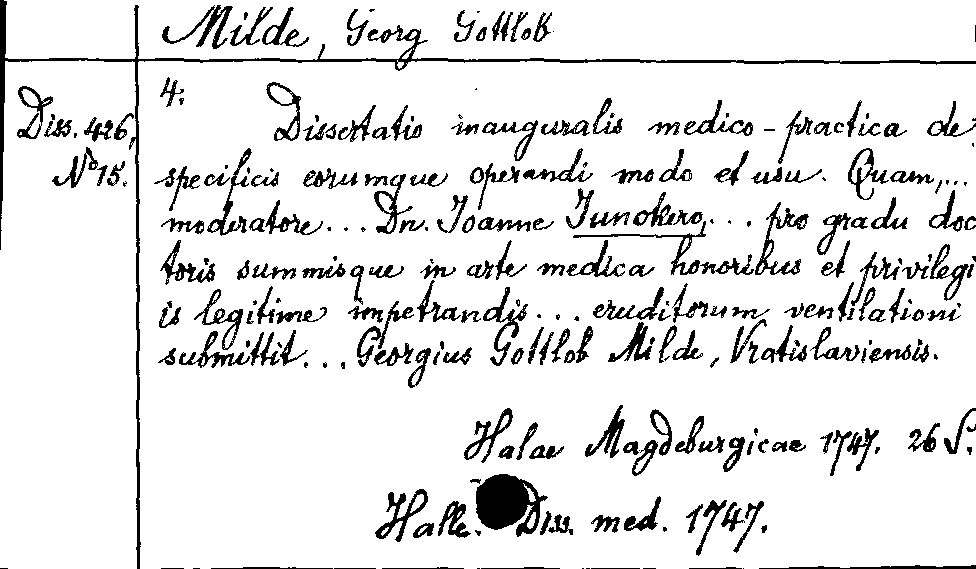 Milde, Georg Gottlob
4.
Diss. 426,
No 15.
Dissertatio inauguralis medico-practica de
specificis eorumque operandi modo et usu. Quam,...
moderatore... Dn. Joanne Junckero,... pro gradu doc
toris summisque in arte medica honoribus et privilegi
is legitime impetrandis... eruditorum ventilationi
submittit... Georgius Gottlob Milde, Vratislaviensis.
Halae Magdeburgicae 1747. 26 S.
Halle. Diss. med. 1747.